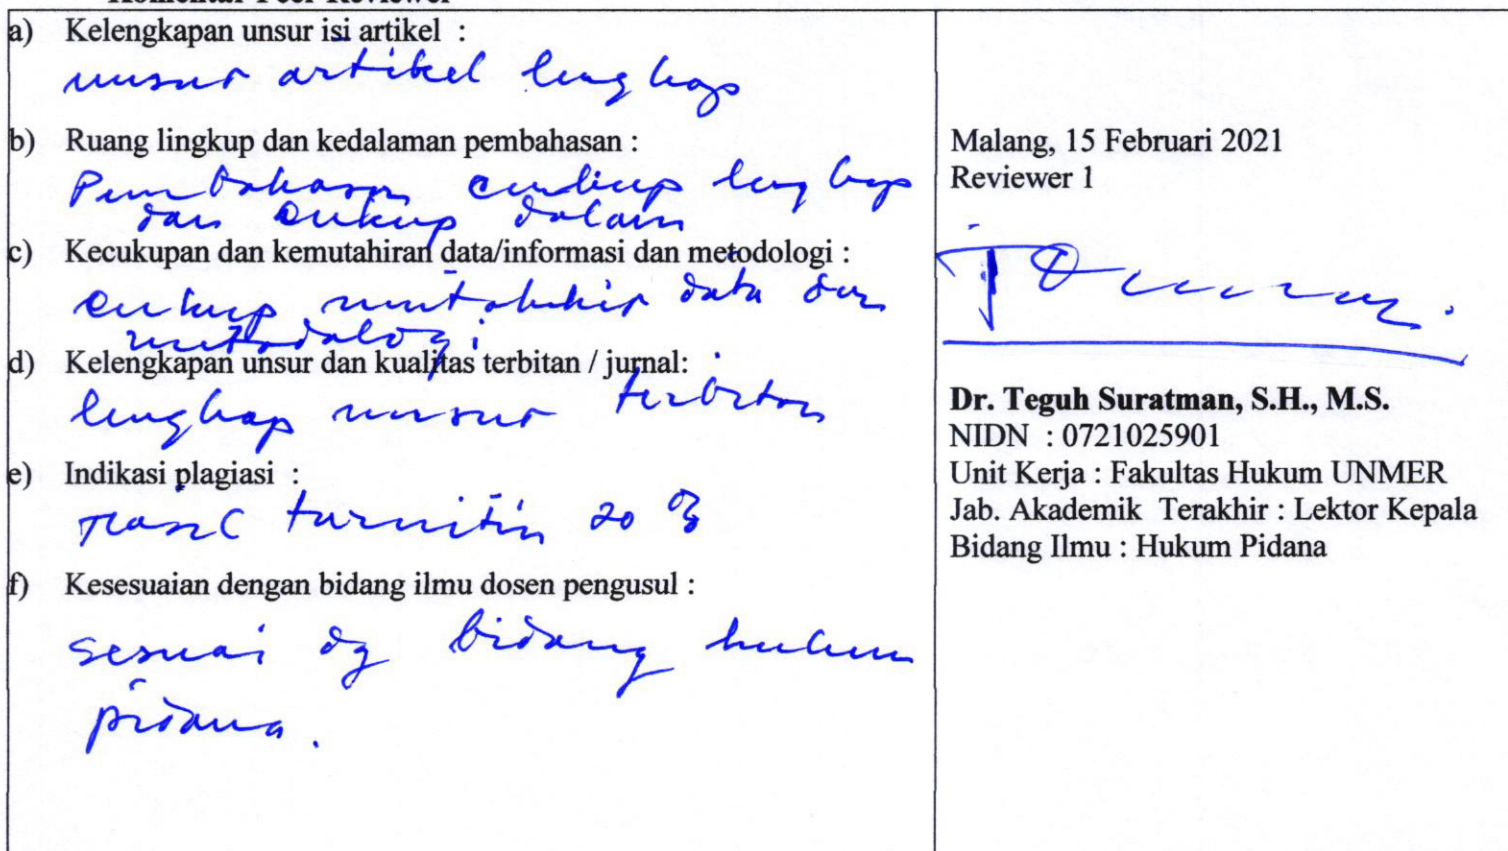 Komentar Peer Reviewer
a) Kelengkapan unsur isi artikel :
unsur artikel lengkap
b) Ruang lingkup dan kedalaman pembahasan :
Pembahasan cukup lengkap
dan cukup dalam
c) Kecukupan dan kemutahiran data/informasi dan metodologi :
cukup mutakhir data dan
metodologi
d) Kelengkapan unsur dan kualitas terbitan / jurnal:
lengkap unsur terbitan
e) Indikasi plagiasi :
Hasil turnitin 20 %
f) Kesesuaian dengan bidang ilmu dosen pengusul :
sesuai dg bidang hukum
pidana.
Malang, 15 Februari 2021
Reviewer 1
Dr. Teguh Suratman, S.H., M.S.
NIDN : 0721025901
Unit Kerja : Fakultas Hukum UNMER
Jab. Akademik Terakhir : Lektor Kepala
Bidang Ilmu : Hukum Pidana